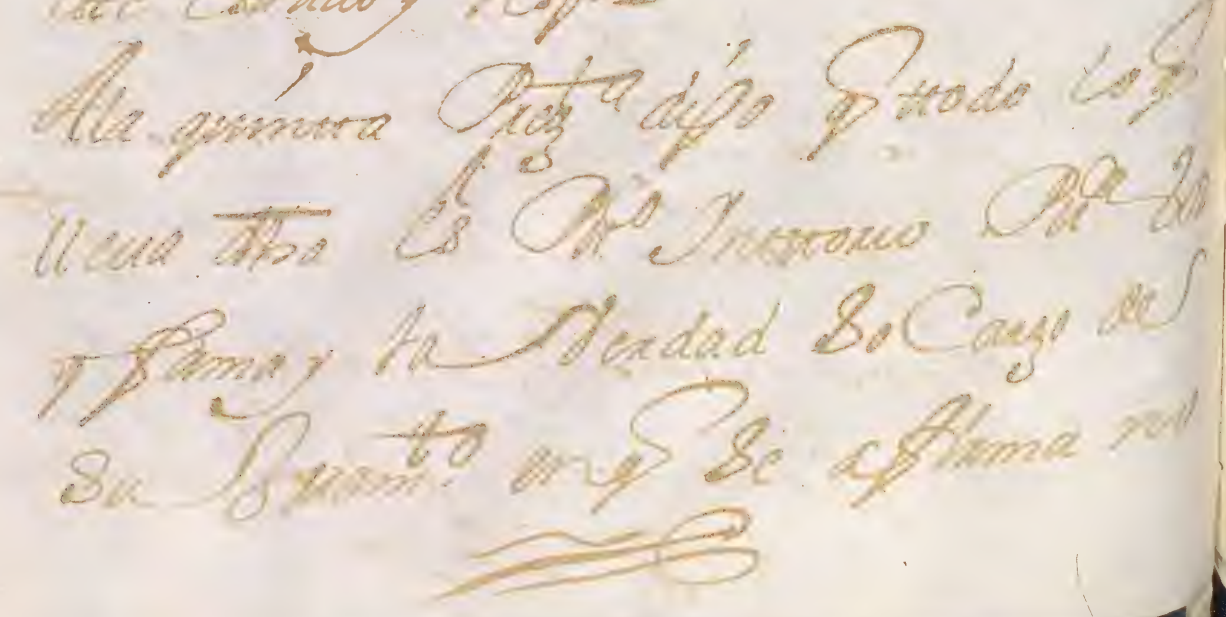 Ala primera Preg.ta dijo q̃ ttodo lo q̃
lleua dho Es P.co Y nottorio P.ca Voz
y ffama y la Verdad So Cargo del
Su Juram.to en q̃ Se affirma